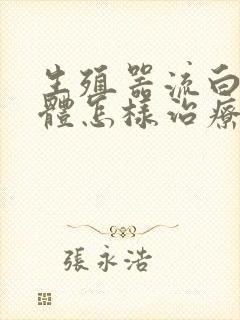 生殖器流白
體怎樣治療
張永浩